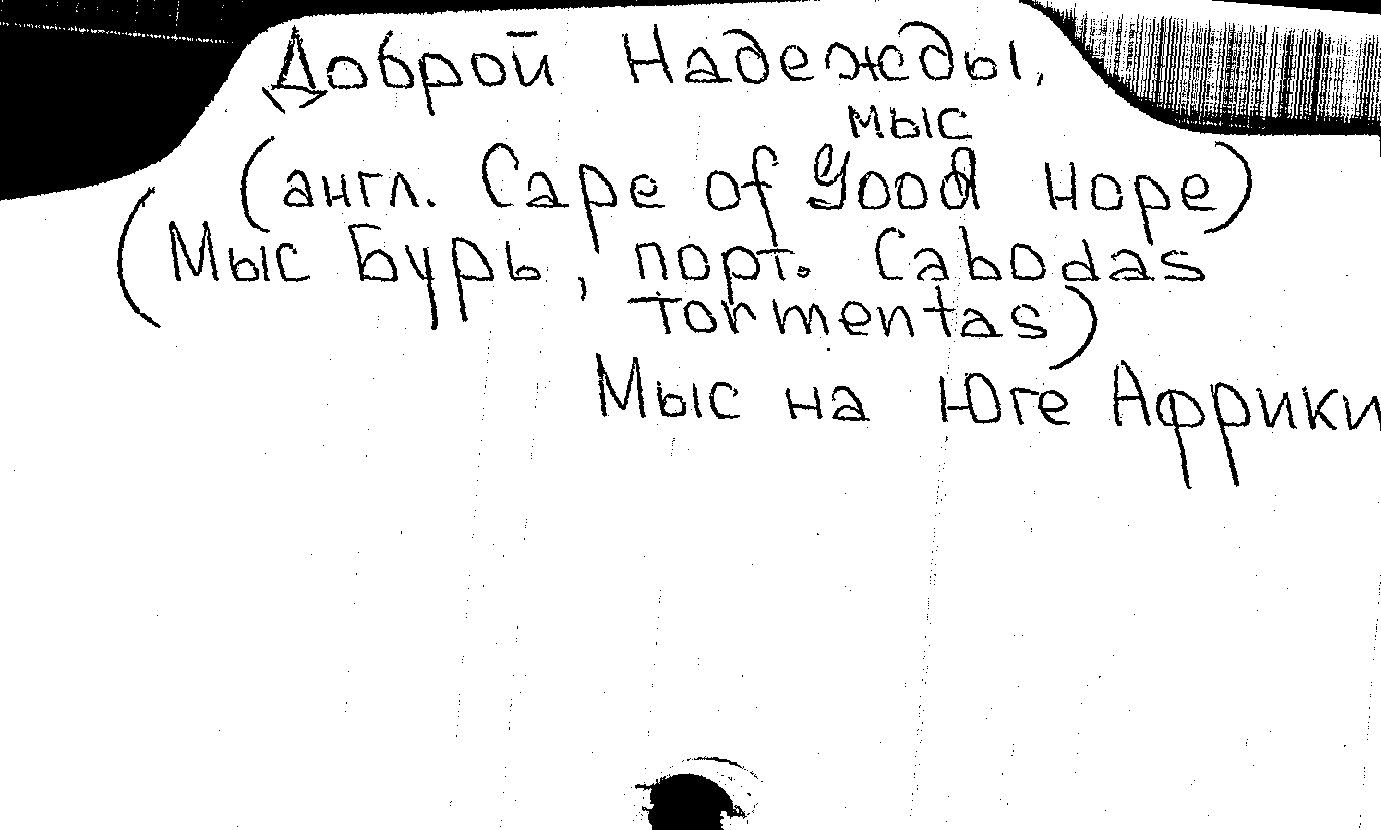 Доброй Надежды,
мыс
(англ. Cape of Good Hope)
(Мыс Бурь, порт. Cabodas
Tormentas)
Мыс на Юге Африки